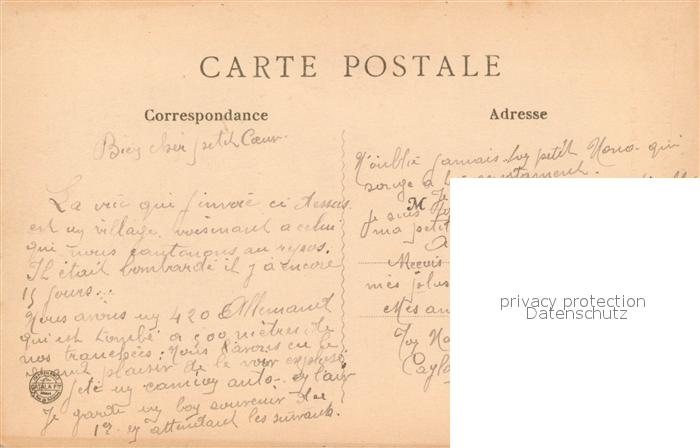 CARTE POSTALE
Correspondance
Adresse
Bien cher petit Cœur.
La vue que j'envoie ci dessus
est un village voisinant a celui
qui nous cantonons au repos.
Il était bombardé il y a encore
15 jours...
Nous avons un 420 Allemand
qui est tombé a 500 mètres de
nos tranchées: Nous l'avons eu le
plaisir de le voir explosé
jeté un camion auto en l'air
Je garde un bon souvenir de
1er en attendant les suivants.
N'oublie jamais ton petit Nono qui
songe a toi
M Je
Je suis
ma petit
mes plus
Mes am
Ton No
privacy protection
Datenschutz